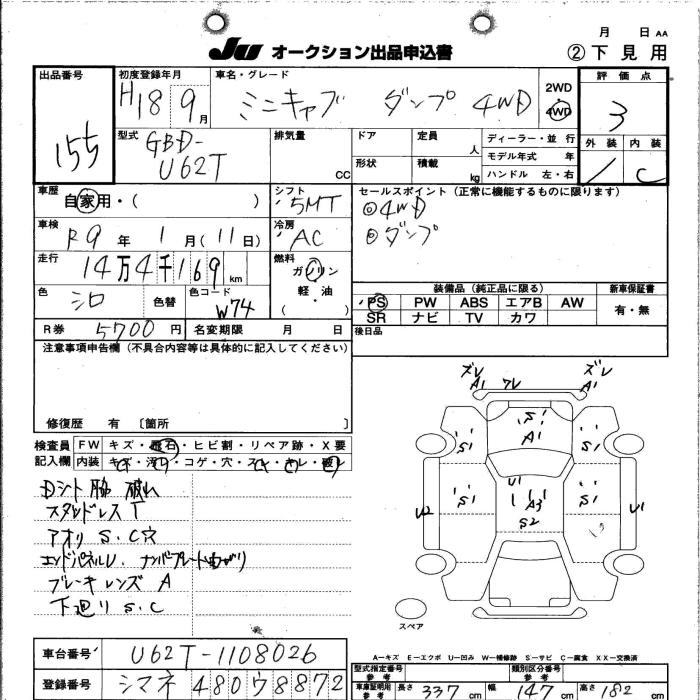 月 日 AA
JU オークション出品申込書 ②下見用
出品番号 初度登録年月 車名・グレード 2WD 評価点
155 H18 9月 ミニキャブ ダンプ 4WD 4WD 3
型式 GBD-U62T 排気量 CC ドア 定員 人 ディーラー・並 行 外装 内装
形状 積載 kg モデル年式 年 C
ハンドル 左・右
車歴 自家用・( ) シフト 5MT セールスポイント(正常に機能するものに限ります)
◎4WD
車検 R9年 1月(11日) 冷房 AC ◎ダンプ
走行 14万4千169km 燃料 ガソリン
軽・油
( )
装備品(純正品に限る) 新車保証書
色 シロ 色替 色コード W74 PS PW ABS エアB AW 有・無
SR ナビ TV カワ
R券 5700円 名変期限 月 日 後日品
注意事項申告欄(不具合内容等は具体的に記入してください)
修復歴 有 〔箇所 〕
ズレ ズレ
A1 ワレ A1
S1
A1
S1 S1
S1 S1
U1
A3
S2
U2 U1
スペア
検査員 FW キズ・飛石・ヒビ割・リペア跡・X要
記入欄 内装 キズ・汚レ・コゲ・穴・スレ・キレ・破レ
Dシート脇 破れ
スタッドレスT
アオリ S.C穴
エンドパネルU. ナンバープレート曲がり
ブレーキレンズ A
下廻り S.C
A-キズ E-エクボ U-凹み W-補修跡 S-サビ C-腐食 XX-交換済
車台番号 U62T-1108026 型式指定番号 参考 類別区分番号 参考
登録番号 シマネ 480ウ8872 車庫証明用 参考 長さ 337cm 幅 147cm 高さ 182cm